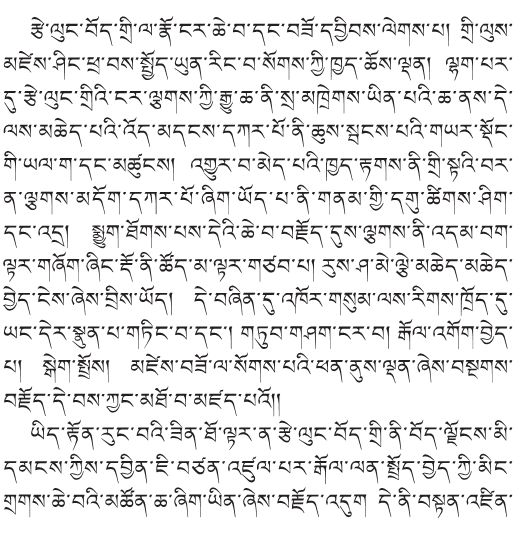 རྩེ་ལུང་བོད་གྲི་ལ་རྣོ་ངར་ཆེ་བ་དང་བཟོ་དབྱིབས་ལེགས་པ། གྲི་ལུས་
མཛེས་ཤིང་ཕྲ་བས་སྤྱོད་ཡུན་རིང་བ་སོགས་ཀྱི་ཁྱད་ཆོས་ལྡན། ལྷག་པར་
དུ་རྩེ་ལུང་གྲིའི་ངར་ལྕགས་ཀྱི་རྒྱུ་ཆ་ནི་སྲ་མཁྲེགས་ཡིན་པའི་ཆ་ནས་དེ་
ལས་མཆེད་པའི་འོད་མདངས་དཀར་པོ་ནི་ཆུས་སྦངས་པའི་གཡར་སྡོང་
གི་ཡལ་ག་དང་མཚུངས། འགྱུར་བ་མེད་པའི་ཁྱད་རྟགས་ནི་གྲི་སྟའི་བར་
ན་ལྕགས་མདོག་དཀར་པོ་ཞིག་ཡོད་པ་ནི་གནམ་གྱི་དགུ་ཚིགས་ཤིག་
དང་འདྲ། སྨྱུག་ཐོགས་པས་དེའི་ཆེ་བ་བརྗོད་དུས་ལྕགས་ནི་འདམ་བག་
ལྟར་གཞོག་ཞིང་རྡོ་ནི་ཚོད་མ་ལྟར་གཙབ་པ། རུས་ཤ་མེ་ལྕེ་མཆེད་མཆེད་
བྱེད་ངེས་ཞེས་བྲིས་ཡོད། དེ་བཞིན་དུ་འཁོར་གསུམ་ལས་རིགས་ཁྲོད་དུ་
ཡང་དེར་སྣུན་པ་གཏིང་བ་དང་། གཏུབ་གཤག་ངར་བ། རྒོལ་འགོག་བྱེད་
པ། སྒེག་སྤྲོས། མཛེས་བཟོ་ལ་སོགས་པའི་ཕན་ནུས་ལྡན་ཞེས་བསྔགས་
བརྗོད་དེ་བས་ཀྱང་མཐོ་བ་མཛད་པའོ།།
ཡིད་རྟོན་རུང་བའི་ཟིན་ཐོ་ལྟར་ན་རྩེ་ལུང་བོད་གྲི་ནི་བོད་ལྗོངས་མི་
དམངས་ཀྱིས་དབྱིན་ཇི་བཙན་འཛུལ་པར་རྒོལ་ལན་སྤྲོད་བྱེད་ཀྱི་མིང་
གྲགས་ཆེ་བའི་མཚོན་ཆ་ཞིག་ཡིན་ཞེས་བརྗོད་འདུག དེ་ནི་བསྟན་འཛིན་